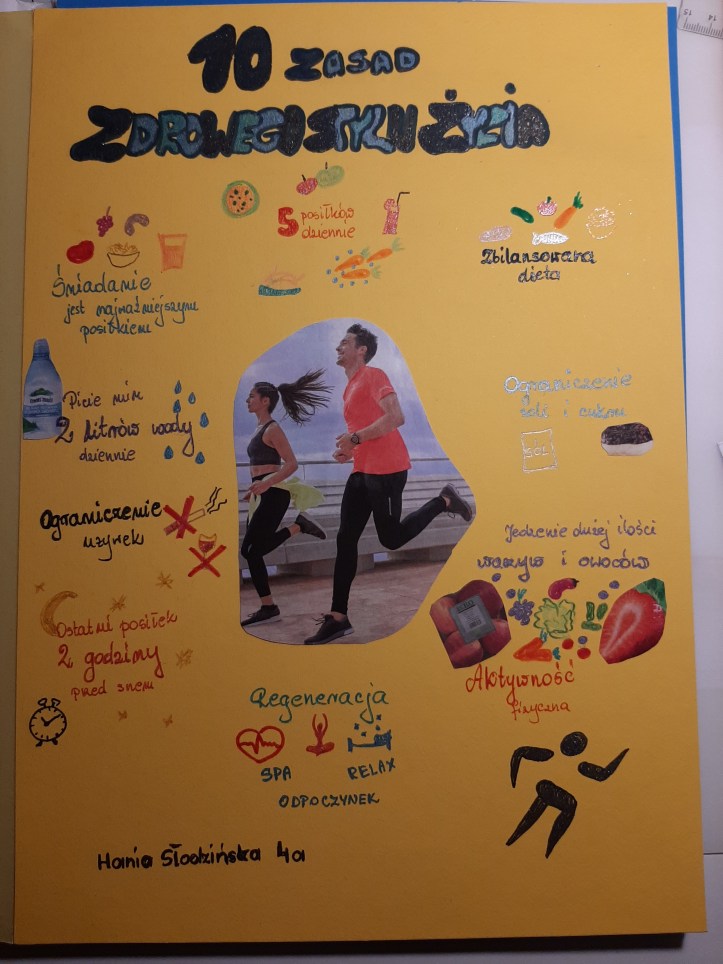 10 ZASAD
ZDROWEGO STYLU ŻYCIA
5 posiłków
dziennie
Zbilansowana
dieta
Śniadanie
jest najważniejszym
posiłkiem
Picie min
2 litrów wody
dziennie
Ograniczenie
soli i cukru
SÓL
Ograniczenie
używek
Jedzenie dużej ilości
warzyw i owoców
Ostatni posiłek
2 godziny
przed snem
Aktywność
fizyczna
Regeneracja
SPA
RELAX
ODPOCZYNEK
Hania Słodzińska 4a